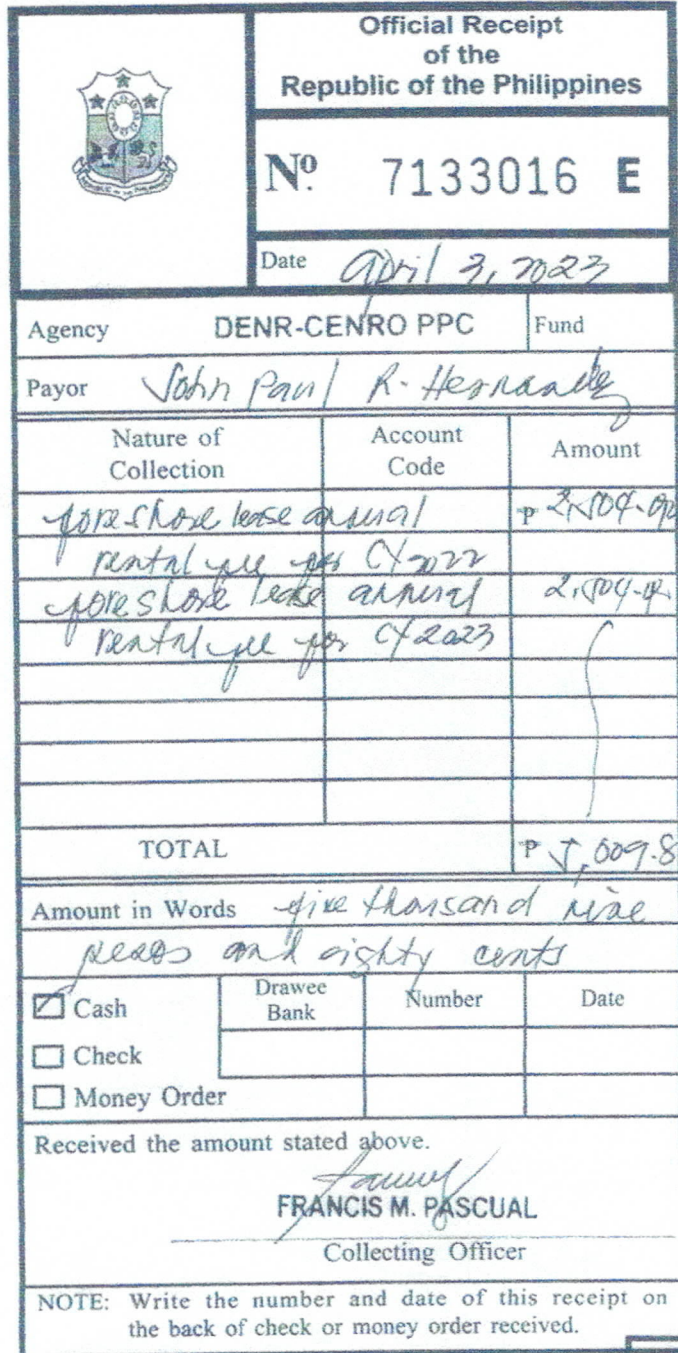 Official Receipt
of the
Republic of the Philippines
REPUBLIC OF THE PHILIPPINES
Nº 7133016 E
Date April 3, 2023
Agency DENR-CENRO PPC Fund
Payor John Paul R. Hernandez
Nature of Collection Account Code Amount
foreshore lease annual ₱ 2,504.90
rental fee for CY 2022
foreshore lease annual 2,504.9
rental fee for CY 2023
TOTAL ₱ 5,009.8
Amount in Words five thousand nine
pesos and eighty cents
Cash Drawee Bank Number Date
Check
Money Order
Received the amount stated above.
FRANCIS M. PASCUAL
Collecting Officer
NOTE: Write the number and date of this receipt on
the back of check or money order received.